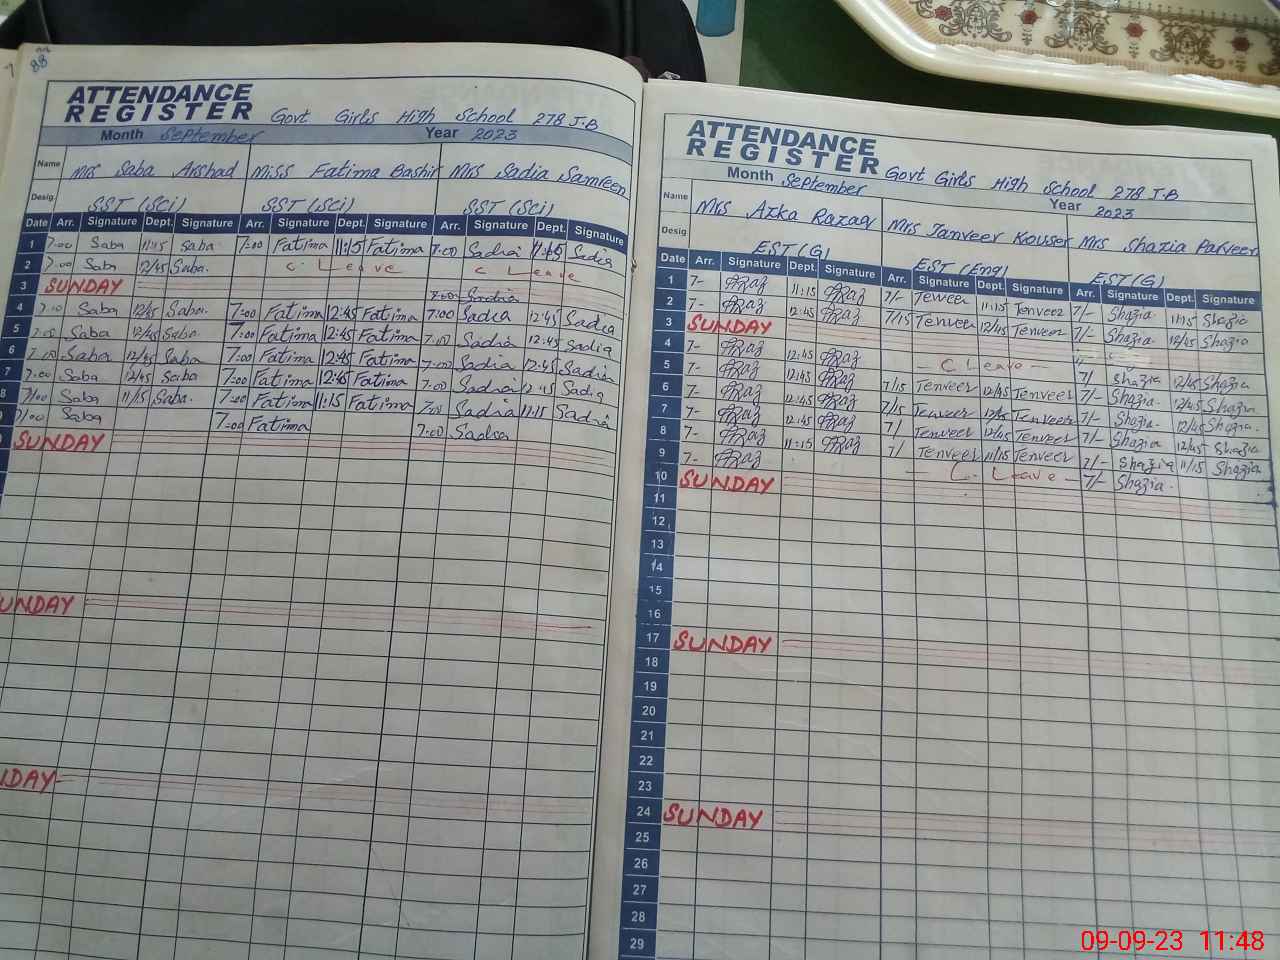 88
ATTENDANCE
REGISTER Govt Girls High School 278 J.B
Month September Year 2023
Name Mrs Saba Arshad Miss Fatima Bashir Mrs Sadia Samreen
Desig. SST (Sci) SST (Sci) SST (Sci)
Date Arr. Signature Dept. Signature Arr. Signature Dept. Signature Arr. Signature Dept. Signature
1 7:00 Saba 11:15 Saba. 7:00 Fatima 11:15 Fatima 7:00 Sadia 11:45 Sadia
2 7:00 Saba 12/45 Saba. C. Leave C Leave
3 SUNDAY 7:00 Sadia
4 7:00 Saba 12/45 Saba. 7:00 Fatima 12:45 Fatima 7:00 Sadia 12:45 Sadia
5 7:00 Saba 12/45 Saba. 7:00 Fatima 12:45 Fatima 7:00 Sadia 12:45 Sadia
6 7:00 Saba 12/45 Saba 7:00 Fatima 12:45 Fatima 7:00 Sadia 12:45 Sadia
7 7:00 Saba 12/45 Saba 7:00 Fatima 12:45 Fatima 7:00 Sadia 12:45 Sadia
8 7/00 Saba 11/15 Saba. 7:00 Fatima 11:15 Fatima 7:00 Sadia 11:15 Sadia
7/00 Saba 7:00 Fatima 7:00 Sadia
SUNDAY
SUNDAY
ATTENDANCE
REGISTER Govt Girls High School 278 J.B
Month September Year 2023
Name Mrs Azka Razaq Mrs Tanveer Kouser Mrs Shazia Parveen
Desig EST (G) EST (Eng) EST (G)
Date Arr. Signature Dept. Signature Arr. Signature Dept. Signature Arr. Signature Dept. Signature
1 7- 11:15 7/- Tenveer 11:15 Tenveer 7/- Shazia 11:15 Shazia
2 7- 12:45 7/15 Tenveer 12/45 Tenveer 7/- Shazia 12/45 Shazia
3 SUNDAY
4 7- 12:45 C Leave 7/ Shazia 12/45 Shazia
5 7- 12:45 7/15 Tenveer 12/45 Tenveer 7/- Shazia 12/45 Shazia
6 7- 12:45 7/15 Tenveer 12/45 Tenveer 7/- Shazia 12/45 Shazia.
7 7- 12:45 7/ Tenveer 12/45 Tenveer 7/- Shazia 12/45 Shazia
8 7- 11:15 7/ Tenveer 11/15 Tenveer 7/- Shazia 11/15 Shazia
9 7- C. Leave 7/- Shazia.
10 SUNDAY
11
12
13
14
15
16
17 SUNDAY
18
19
20
21
22
23
24 SUNDAY
25
26
27
28
29
09-09-23 11:48